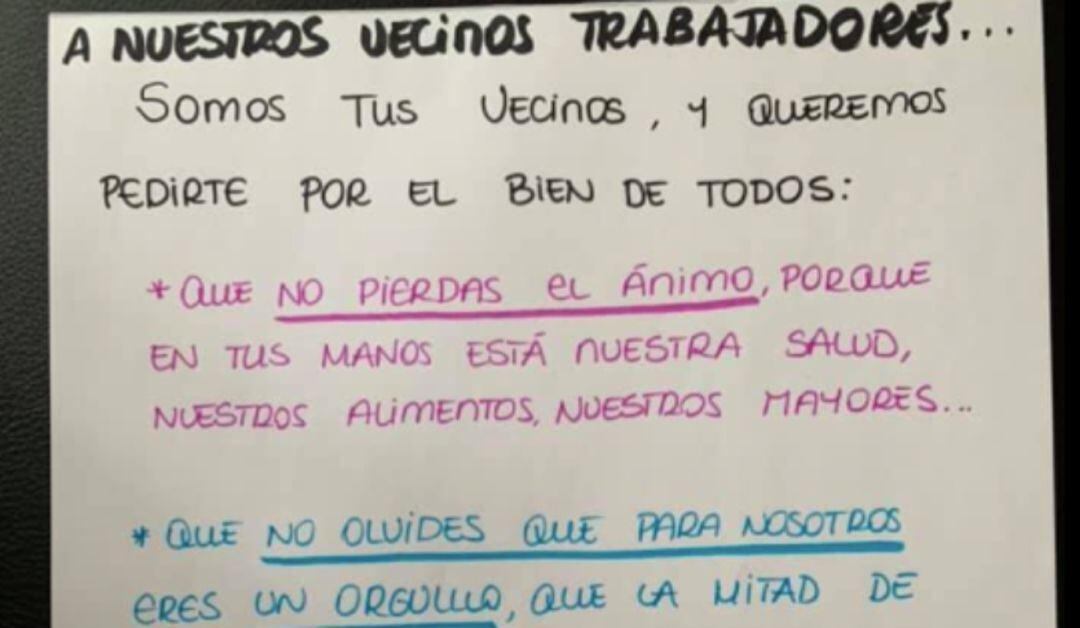 A NUESTROS VECINOS TRABAJADORES...
SOMOS TUS VECINOS, Y QUEREMOS
PEDIRTE POR EL BIEN DE TODOS:
* QUE NO PIERDAS EL ÁNIMO, PORQUE
EN TUS MANOS ESTÁ NUESTRA SALUD,
NUESTROS ALIMENTOS, NUESTROS MAYORES...
* QUE NO OLVIDES QUE PARA NOSOTROS
ERES UN ORGULLO, QUE LA MITAD DE